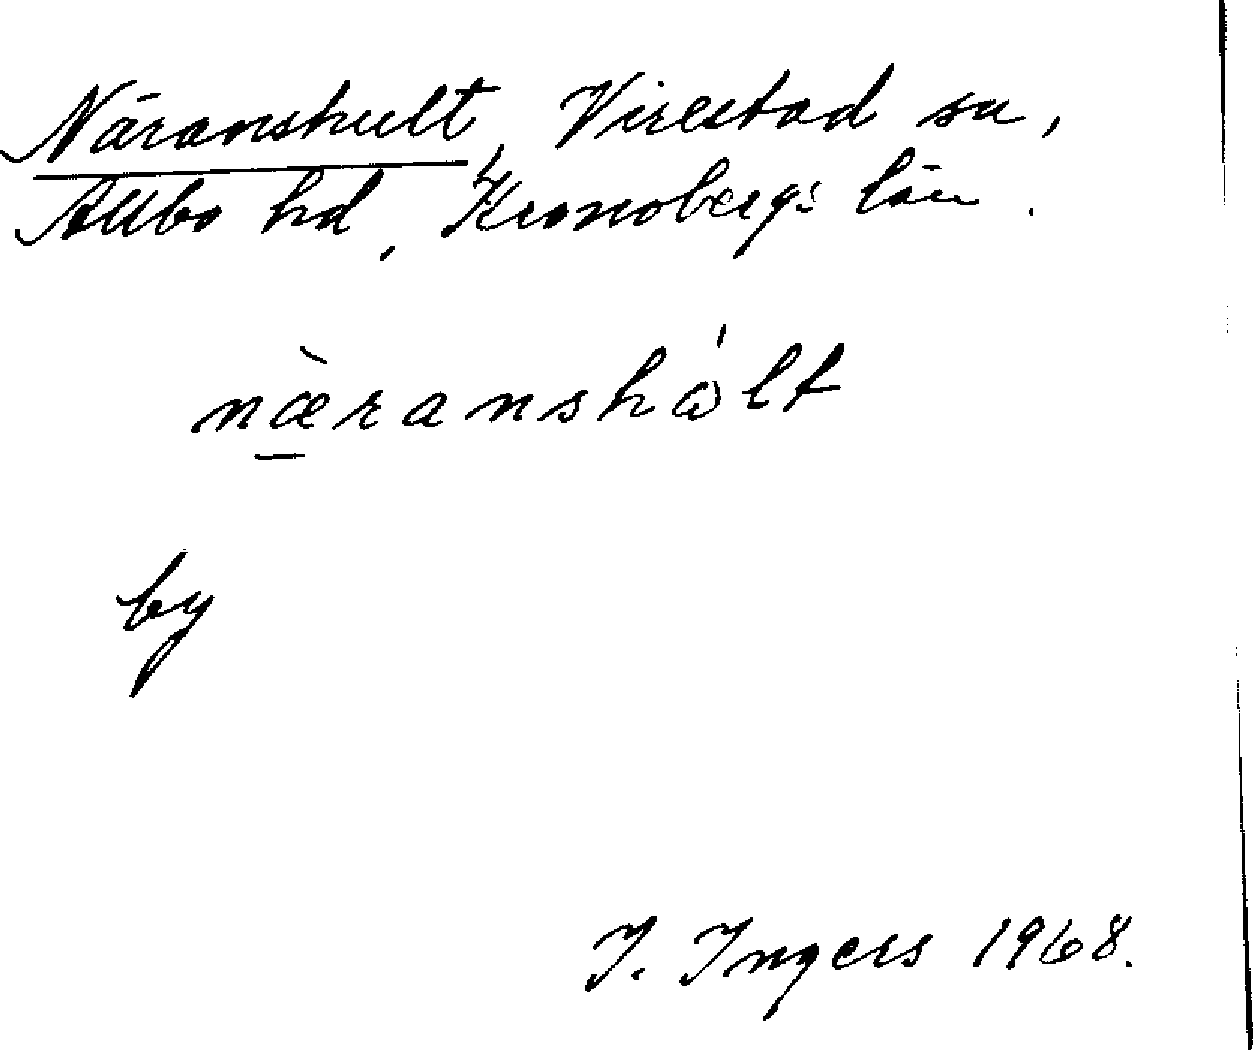 Näranshult, Virestad sn,
Allbo hd, Kronobergs län.
næ̠̀ranshǻlt
by
I. Ingers 1968.